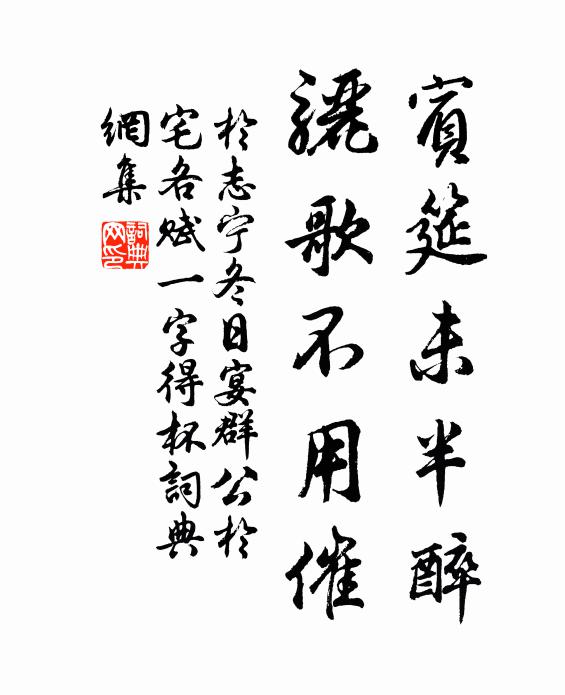 賓筵未半醉
驪歌不用催
於志宁冬日宴群公於
宅各赋一字得杯詞典
網集
詞典
网印